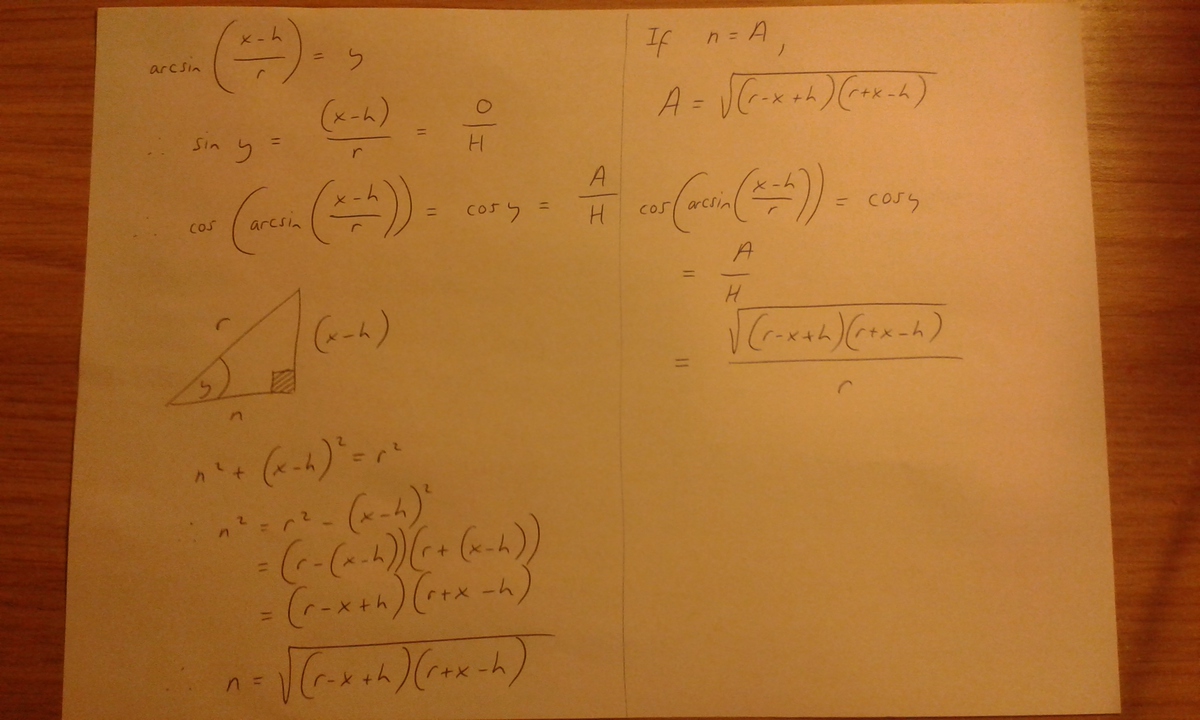 arcsin ((x-h)/r) = y
∴ sin y = (x-h)/r = O/H
∴ cos (arcsin ((x-h)/r)) = cos y = A/H
r
(x-h)
y
n
n² + (x-h)² = r²
∴ n² = r² - (x-h)²
= (r-(x-h))(r+(x-h))
= (r-x+h)(r+x-h)
∴ n = √((r-x+h)(r+x-h))
If n = A,
A = √((r-x+h)(r+x-h))
cos(arcsin((x-h)/r)) = cos y
= A/H
= √((r-x+h)(r+x-h))/r